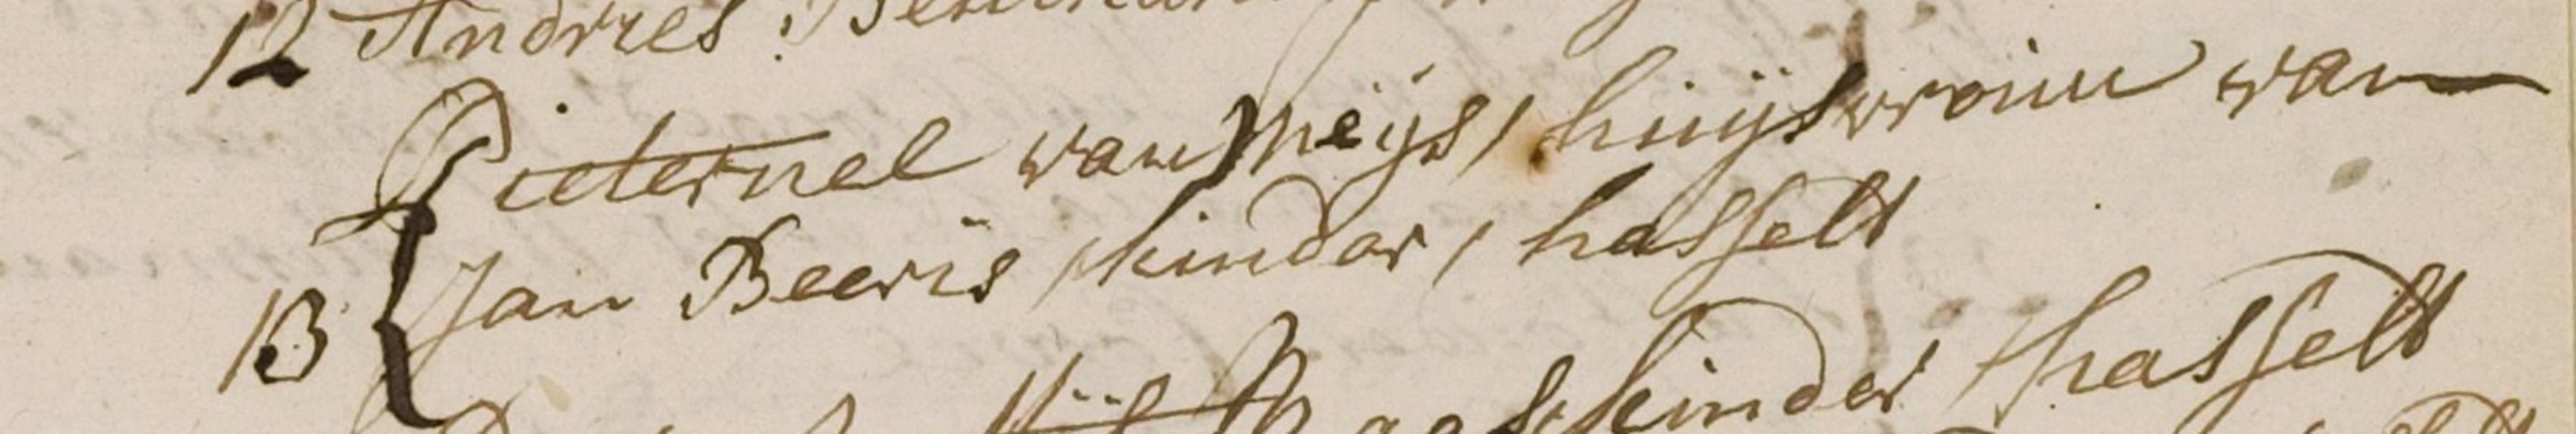 12 Andries
Pieternel van Meijs / huijsvrouw van
13 Jan Beeris / kinder / hasselt
kinder / hasselt